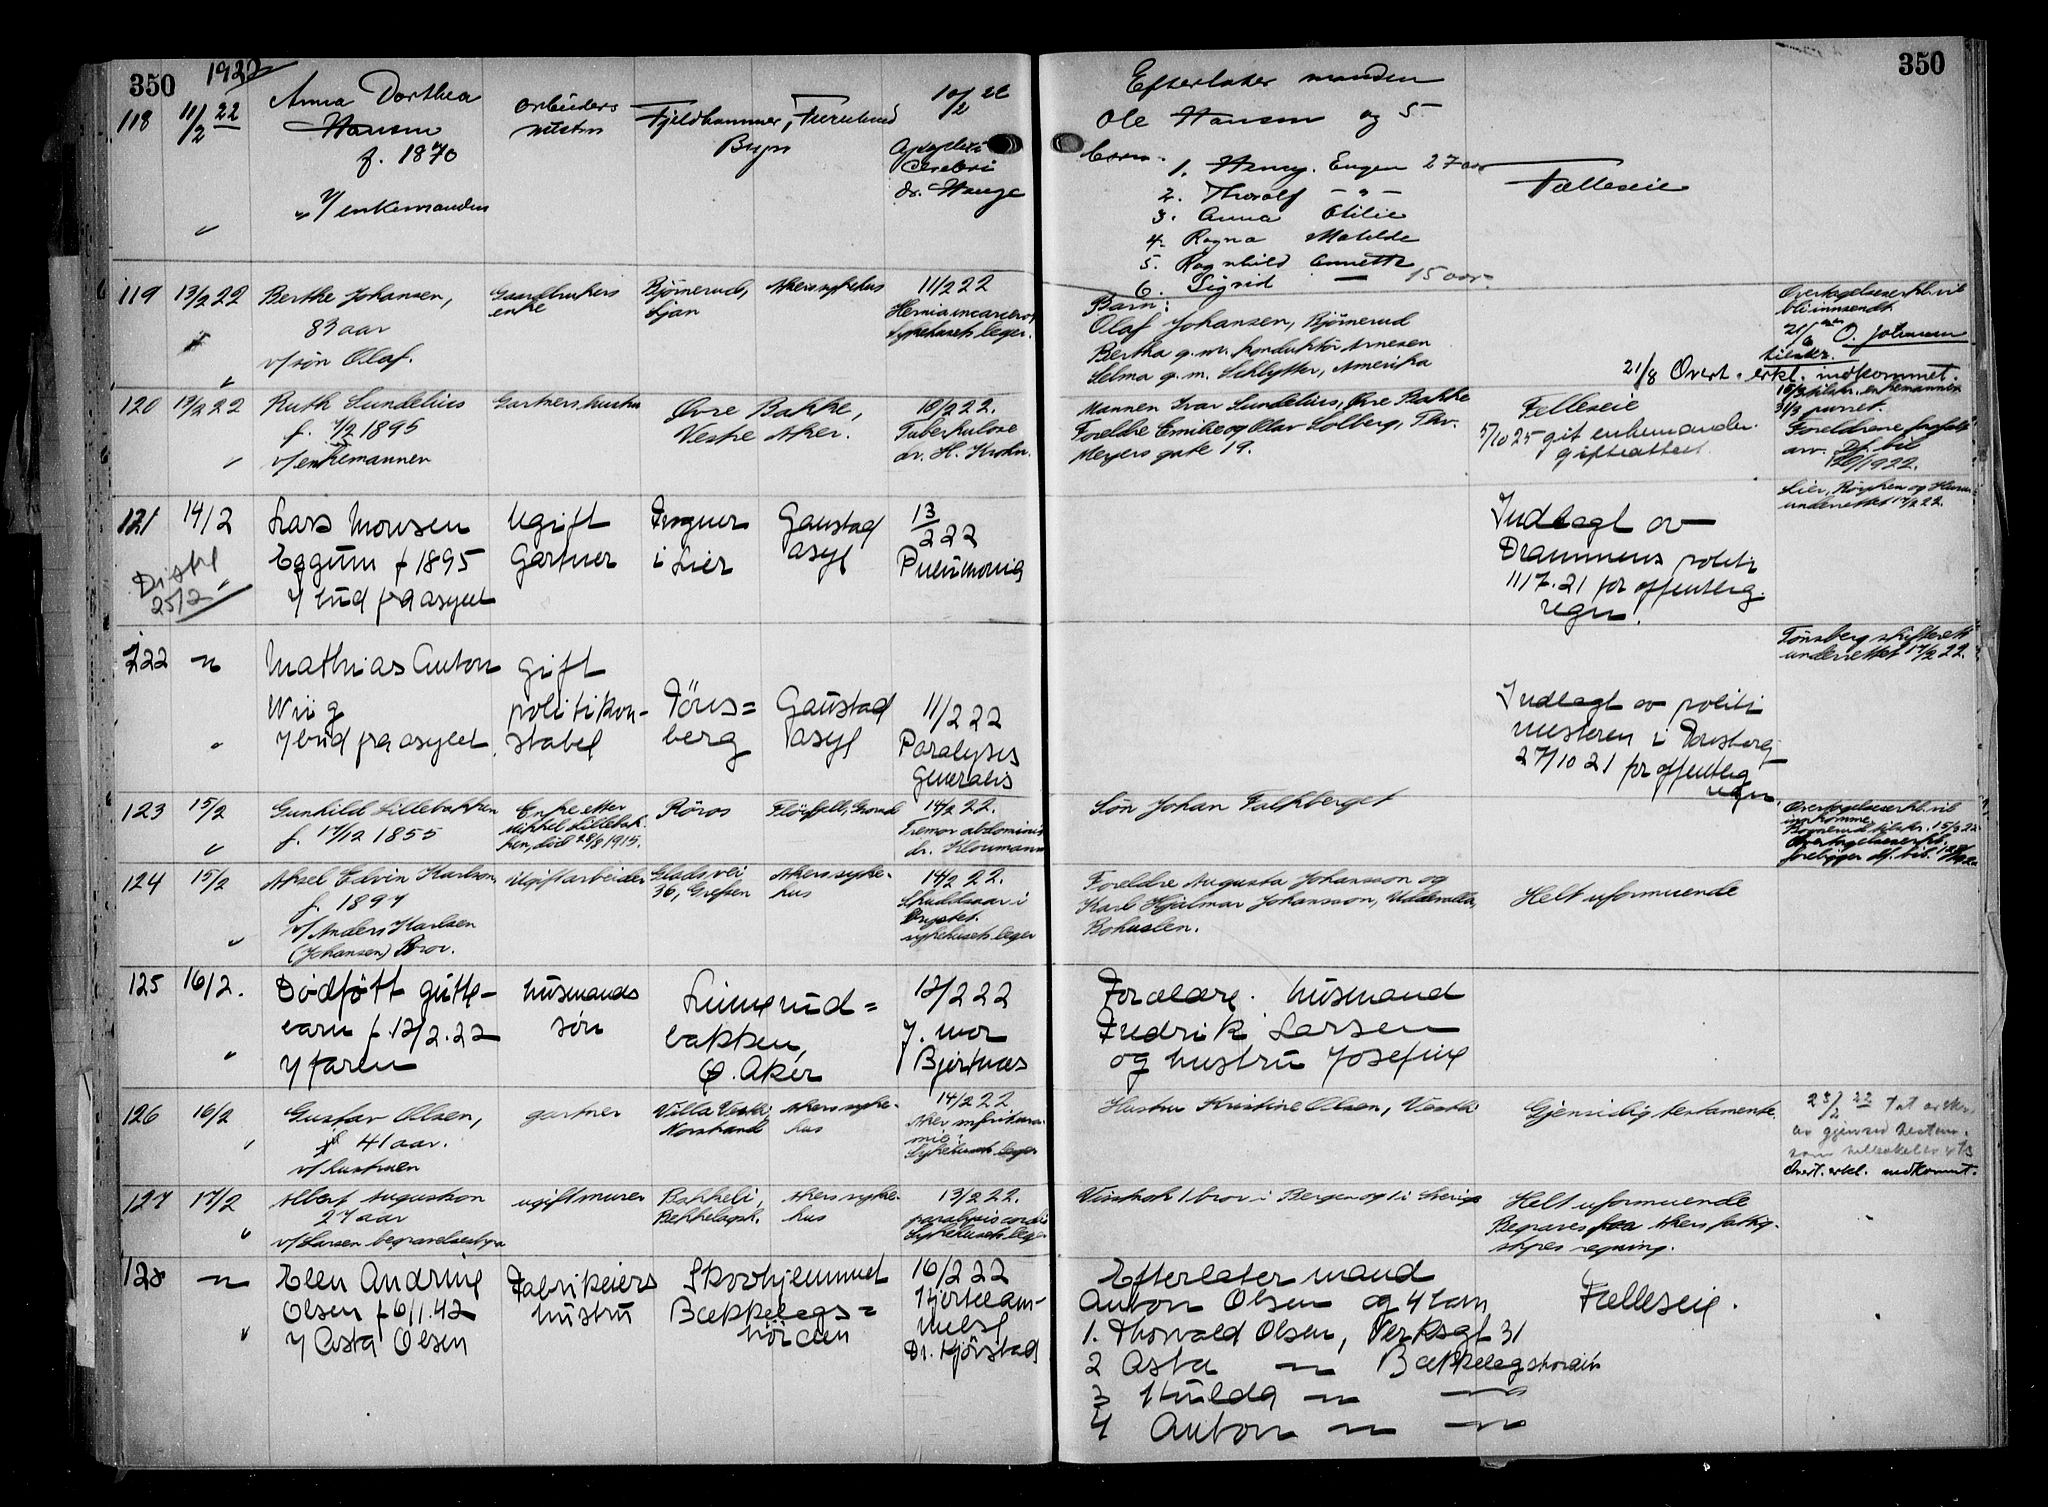 350
1922
350
118
11/2 22
Anna Dorthea
Hansen
f. 1870
v/ enkemanden
arbeiders
hustru
Fjeldhammer, Furulund
Bryn
10/2 22
Apoplexi
Cerebri
dr. Hauge
Efterlater manden
Ole Hansen og 5
barn.
1. Henry Eugen 27 aar
2. Thoralf – " –
3. Anna Otilie
4. Ragna Matilde
5. Ragnhild Annette
6. Sigrid — 15 aar.
Fælleseie
119
13/2 22
Berthe Johansen,
83 aar
v/ søn Olaf.
Gaardbrukers
enke
Bjørnerud,
Ljan
Akers sykehus
11/2 22
Hernia incarcerat
Sykehusets leger.
Barn:
Olaf Johansen, Bjørnerud
Bertha g. m. konduktør Arnesen
Selma g. m. Schlytter, Amerika
21/8 Overt. erkl. indkommet.
Overtagelseserkl. vil
bli innsendt
21/6 O. Johansen
tilskr.
120
13/2 22
Ruth Sundelius
f. 7/2 1895
v/ enkemannen
Gartners hustru
Øvre Bakke,
Vestre Aker.
10/2 22.
Tuberkulose
dr. H. Krohn.
Mannen Ivar Sundelius, Øvre Bakke
Foreldre Emilie og Olav Solberg, Thv.
Meyers gate 19.
Felleseie
5/10 25 git enkemanden
gifteattest.
tilskr. enkemannen
31/3 purret.
Foreldrene frafalt
arv.
121
14/2
Distr
25/2
Lars Monsen
Eggum f 1895
v/ bud fra asylet
Ugift
Gartner
Frogner
i Lier
Gaustad
asyl
13/2 22
Pneumonia
Indlagt av
Drammens politi
11/7.21 for offentlig
regn.
Lier, Røyken og Hurum
underrettet 17/2 22.
122
"
Mathias Anton
Wiig
v/ bud fra asylet
gift
politikon-
stabel
Töns=
berg
Gaustad
asyl
11/2 22
Paralysis
Generalis
Indlagt av politi
mesteren i Tønsberg
27/10 21 for offentlig
regn.
Tønsberg skifterett
underrettet 17/2 22.
123
15/2
Gunhild Lillebakken
f. 17/12 1855
Enke etter
Mikkel Lillebak-
ken, død 28/8 1915.
Röros
Fløyfjell, Grorud
14/2 22.
Tremor abdominis
dr. Kloumann
Søn Johan Falkberget
Overtagelseserkl. vil
innkomme
Overtagelseserkl.
foreligger
124
15/2
Aksel Edvin Karlsen,
f. 1897
v/ Anders Karlsen
(Johansen) Bror.
ugift arbeider
Glads vei
36, Grefsen
Akers syke-
hus
14/2 22.
Skuddsaar i
brystet.
sykehusets leger
Foreldre Augusta Johansson og
Karl Hjalmar Johansson, Uddevalla,
Bohuslen.
Helt uformuende
125
16/2.
Dödfött gutte-
barn f. 12/2.22
v/ faren
husmands
søn
Limerud=
bakken,
Ø. Aker
12/2 22
J. mor
Bjertnæs
Forældre. husmand
Fredrik Larsen
og hustru Josefine
126
16/2
Gustav Olsen,
41 aar.
v/ hustruen
gartner
Villa Vestli
Nordstrand
Akers syke-
hus
14/2 22
Sykehusets leger
Hustru Kristine Olsen, Vestli
Gjensidig testamente.
23/2 22
Overt. erkl. indkommet.
127
17/2
Albert Augustson
27 aar
v/ Larsen begravelsesbyra
ugift murer
Bekkeli,
Bekkelagsh.
Akers syke-
hus
13/2 22.
paralysis cordis
Sykehusets leger
Visstnok 1 bror i Bergen og 1 i Sverige
Helt uformuende
Begraves for Akers fattig-
styres regning.
128
"
Elen Andrine
Olsen f 6/1.42
v/ Asta Olsen
Fabrikeiers
hustru
Skovhjemmet
Bækkelags=
høiden
16/2 22
Hjertelam-
melse
Dr. Hjörstad
Efterlater mand
Anton Olsen og 4 barn
1. Thorvald Olsen, Verksgt 31
2 Asta — " — Bækkelagshøiden
3 Hulda — " — — " —
4 Anton — " — — " —
Fælleseie.